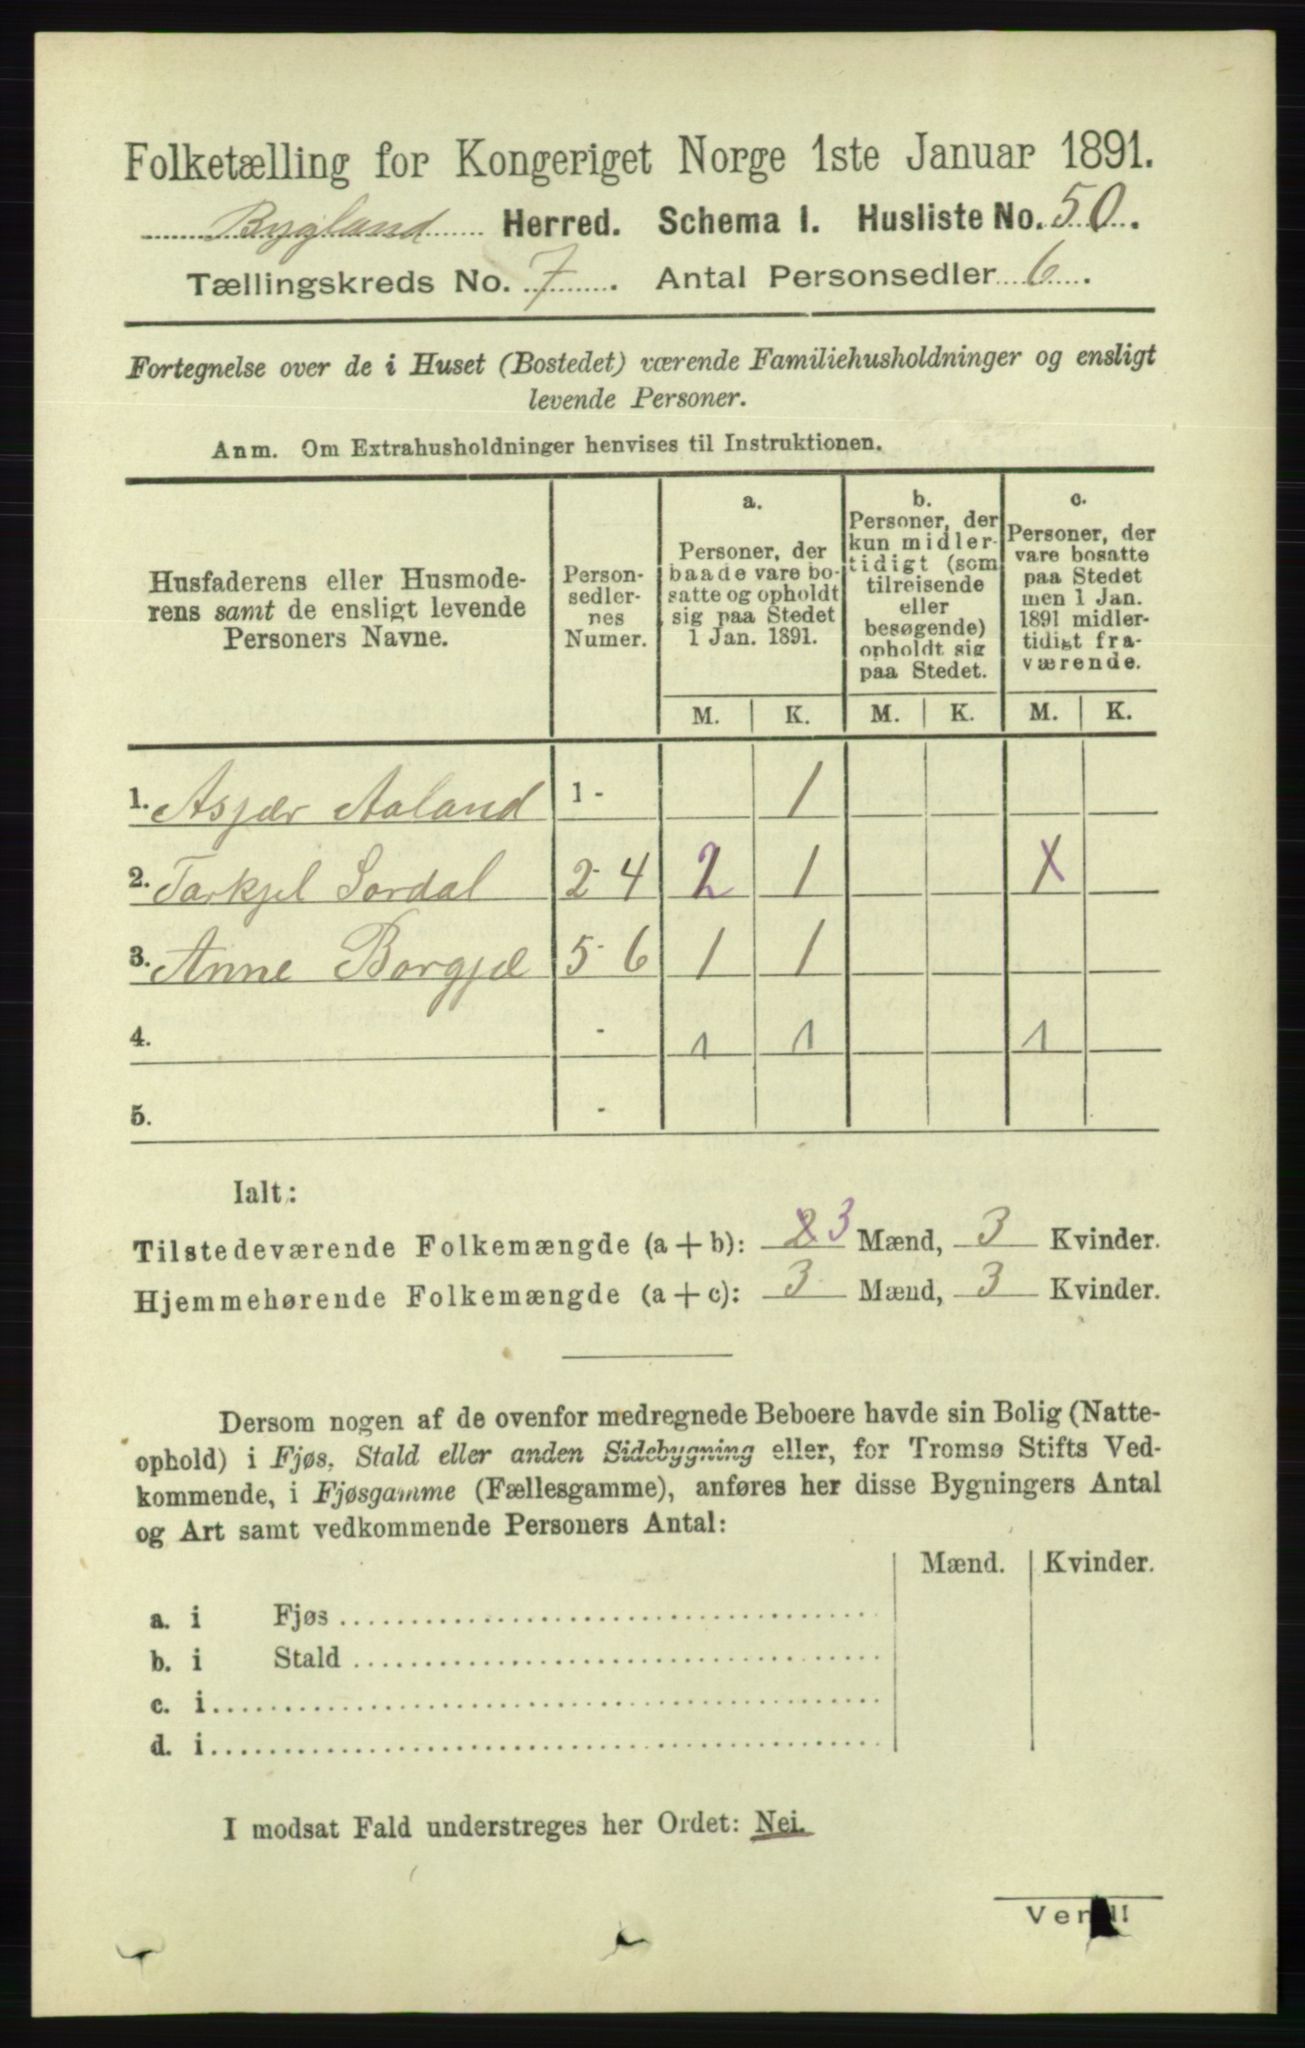 Folketælling for Kongeriget Norge 1ste Januar 1891.
Bygland Herred. Schema I. Husliste No. 50.
Tællingskreds No. 7. Antal Personsedler 6.
Fortegnelse over de i Huset (Bostedet) værende Familiehusholdninger og ensligt
levende Personer.
Anm. Om Extrahusholdninger henvises til Instruktionen.
Husfaderens eller Husmode-
rens samt de ensligt levende
Personers Navne.
Person-
sedler-
nes
Numer.
a.
Personer, der
baade vare bo-
satte og opholdt
sig paa Stedet
1 Jan. 1891.
b.
Personer, der
kun midler-
tidigt (som
tilreisende
eller
besøgende)
opholdt sig
paa Stedet.
c.
Personer, der
vare bosatte
paa Stedet
men 1 Jan.
1891 midler-
tidigt fra-
værende.
M. K. M. K. M. K.
1. Asjær Aaland 1 - 1
2. Tarkjel Sordal 2-4 2 1 X
3. Anne Borgjæ 5-6 1 1
4. - 1 1 1
5. -
Ialt:
Tilstedeværende Folkemængde (a+b): 2 3 Mænd, 3 Kvinder.
Hjemmehørende Folkemængde (a+c): 3 Mænd, 3 Kvinder.
Dersom nogen af de ovenfor medregnede Beboere havde sin Bolig (Natte-
ophold) i Fjøs, Stald eller anden Sidebygning eller, for Tromsø Stifts Ved-
kommende, i Fjøsgamme (Fællesgamme), anføres her disse Bygningers Antal
og Art samt vedkommende Personers Antal:
Mænd. Kvinder.
a. i Fjøs
b. i Stald
c. i
d. i
I modsat Fald understreges her Ordet: Nei.